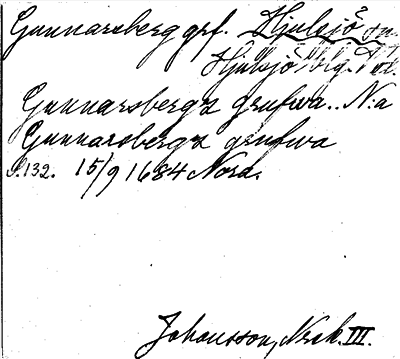 Gunnarsberg grf. Hjulsjö sn.
Hjulsjö
Gunnarsbergz grufwa. N:a
Gunnarsbergz grufwa
S.132. 15/9 1684 Nora.
Johansson, Norab. III.